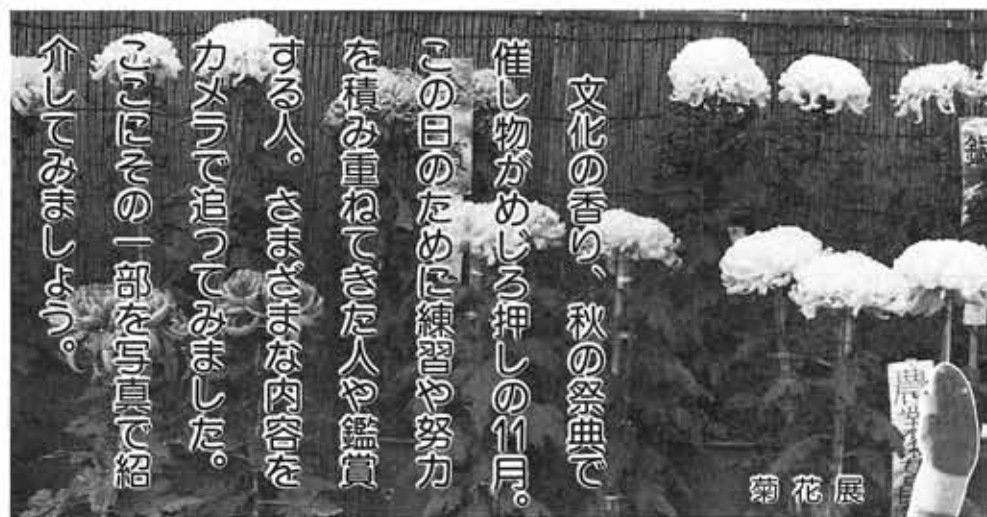 文化の香り、秋の祭典で
催し物がめじろ押しの11月。
この日のために練習や努力
を積み重ねてきた人や鑑賞
する人。さまざまな内容を
カメラで追ってみました。
ここにその一部を写真で紹
介してみましょう。
菊花展